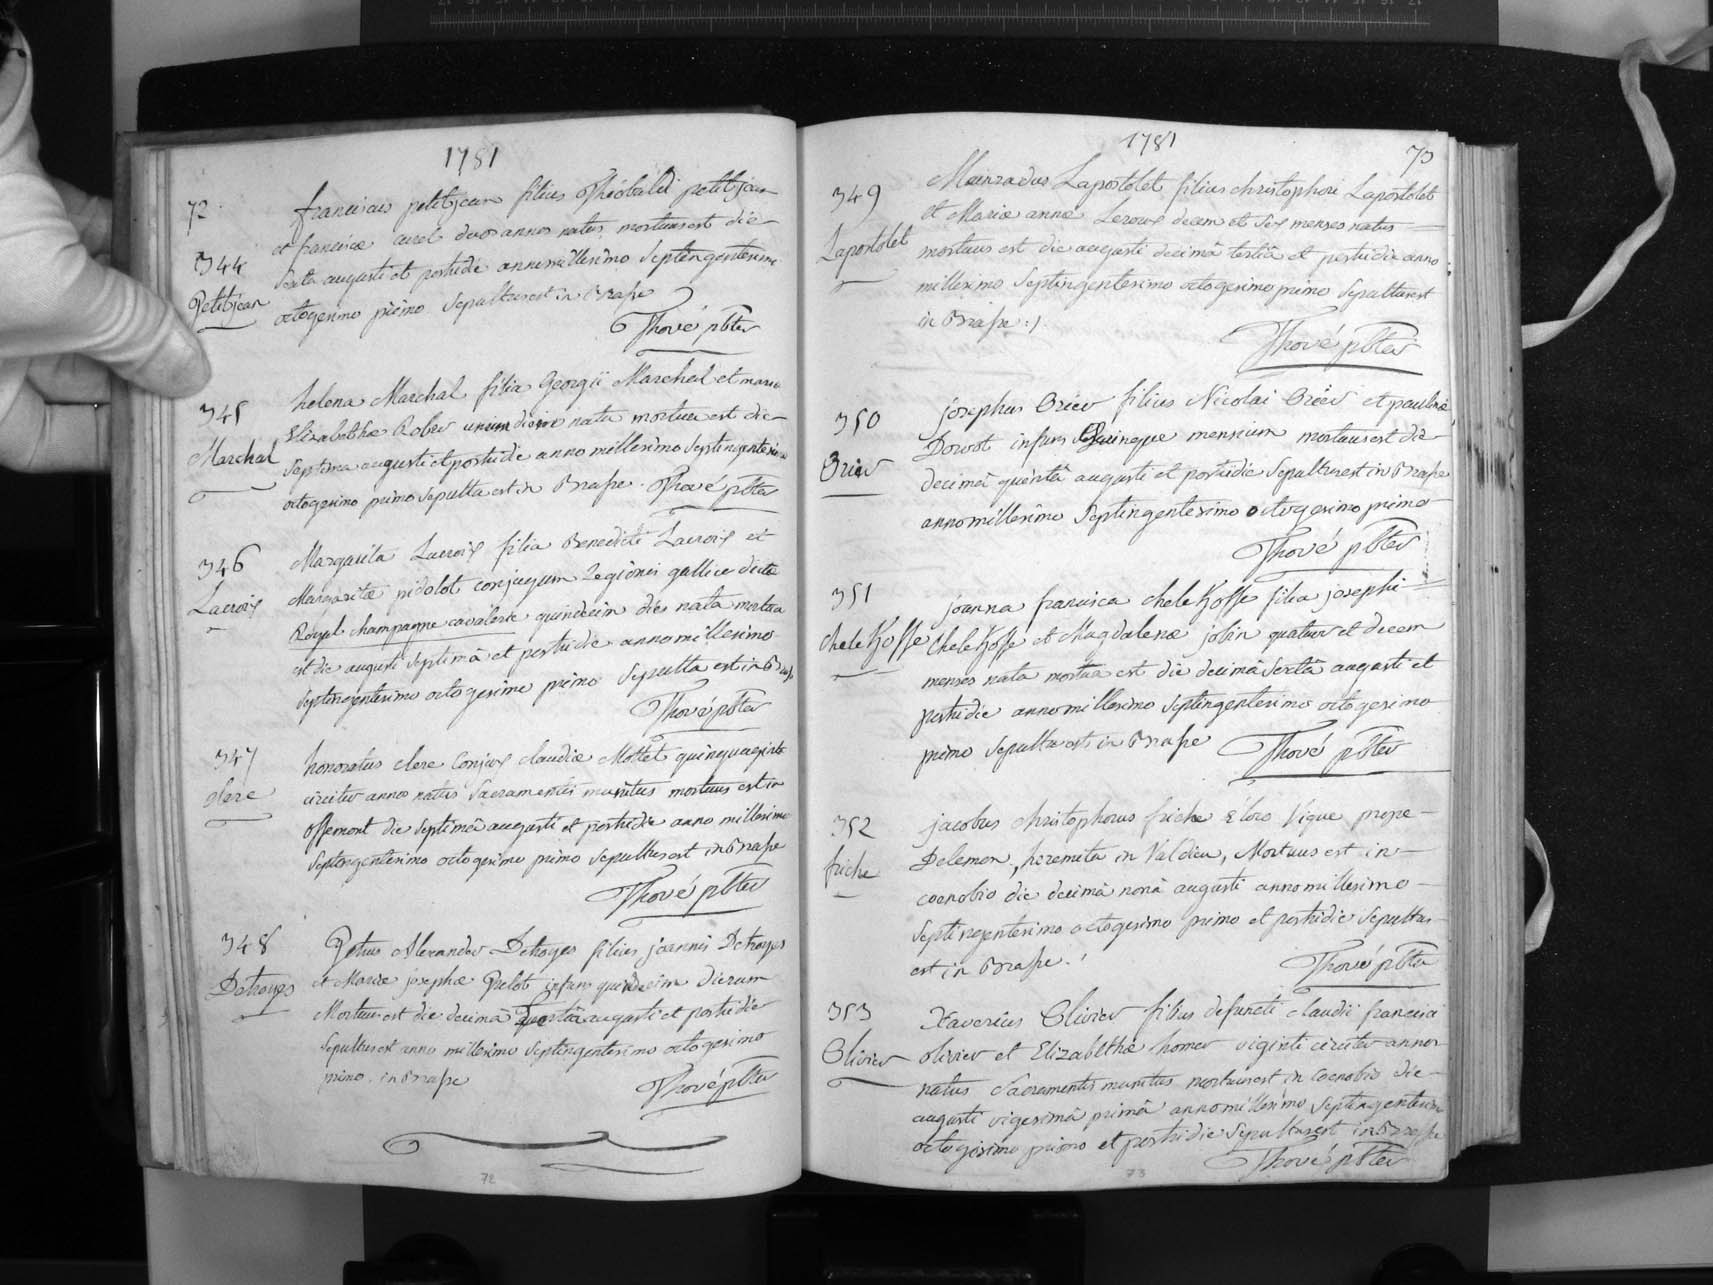 1781
72
344
Petitjean
franciscus petitjean filius Théobaldi petitjean
et franciscæ curel duos annos natus mortuus est die
sexta augusti et postridie anno millesimo Septingentesimo
octogesimo primo Sepultus est in Brasse
Thové pbter
345
Marchal
helena Marchal filia Georgii Marchal et mariæ
Elizabethæ Rober unum diem nata mortua est die
Septima augusti et postridie anno millesimo Septingentesimo
octogesimo primo Sepulta est in Brasse. Thové pbter
346
Lacroix
Margarita Lacroix filia Benedicti Lacroix et
Margaritæ pidolot conjugum Legionis gallice dictæ
Royal champagne cavalerie quindecim dies nata mortua
est die augusti Septimâ et postridie anno millesimo
Septingentesimo octogesimo primo Sepulta est in Brasse
Thové pbter
347
clere
honoratus clere Conjux claudiæ Mottet quinquaginta
circiter annos natus Sacramentis munitus mortuus est in
offemont die Septimâ augusti et postridie anno millesimo
Septingentesimo octogesimo primo Sepultus est in Brasse
Thové pbter
348
Detroyes
Petrus Alexander Detroyes filius joannis Detroyes
et Mariæ josephæ Pelot infans quindecim dierum
Mortuus est die decimâ augusti et postridie
Sepultus est anno millesimo Septingentesimo octogesimo
primo. in Brasse
Thové pbter
72
1781
73
349
Lapostolet
Meinradus Lapostolet filius christophori Lapostolet
et Mariæ annæ Leroux decem et Sex menses natus
mortuus est die augusti decimâ tertiâ et postridie anno
millesimo Septingentesimo octogesimo primo Sepultus est
in Brasse :/.
Thové pbter
350
Briër
josephus Briër filius Nicolai Briër et paulinæ
Dorvot infans Quinque mensium mortuus est die
decimâ quintâ augusti et postridie Sepultus est in Brasse
anno millesimo Septingentesimo octogesimo primo
Thové pbter
351
cheleKosse
joanna francisca cheleKosse filia josephi
cheleKosse et Magdalenæ jolin quatuor et decem
menses nata mortua est die decimâ Sextâ augusti et
postridie anno millesimo Septingentesimo octogesimo
primo Sepulta est in Brasse Thové pbter
352
friche
jacobus christophorus friche E loco Vique prope
Delemon, heremita in Valdieu, Mortuus est in
coenobio die decimâ nonâ augusti anno millesimo
Septingentesimo octogesimo primo et postridie Sepultus
est in Brasse.
Thové pbter
353
Olivier
Xaverius Olivier filius defuncti claudii francisci
olivier et Elizabethæ homer viginti circiter annos
natus Sacramentis munitus mortuus est in coenobio die
augusti vigesimâ primâ anno millesimo Septingentesimo
octogesimo primo et postridie Sepultus est in Brasse
Thové pbter
73